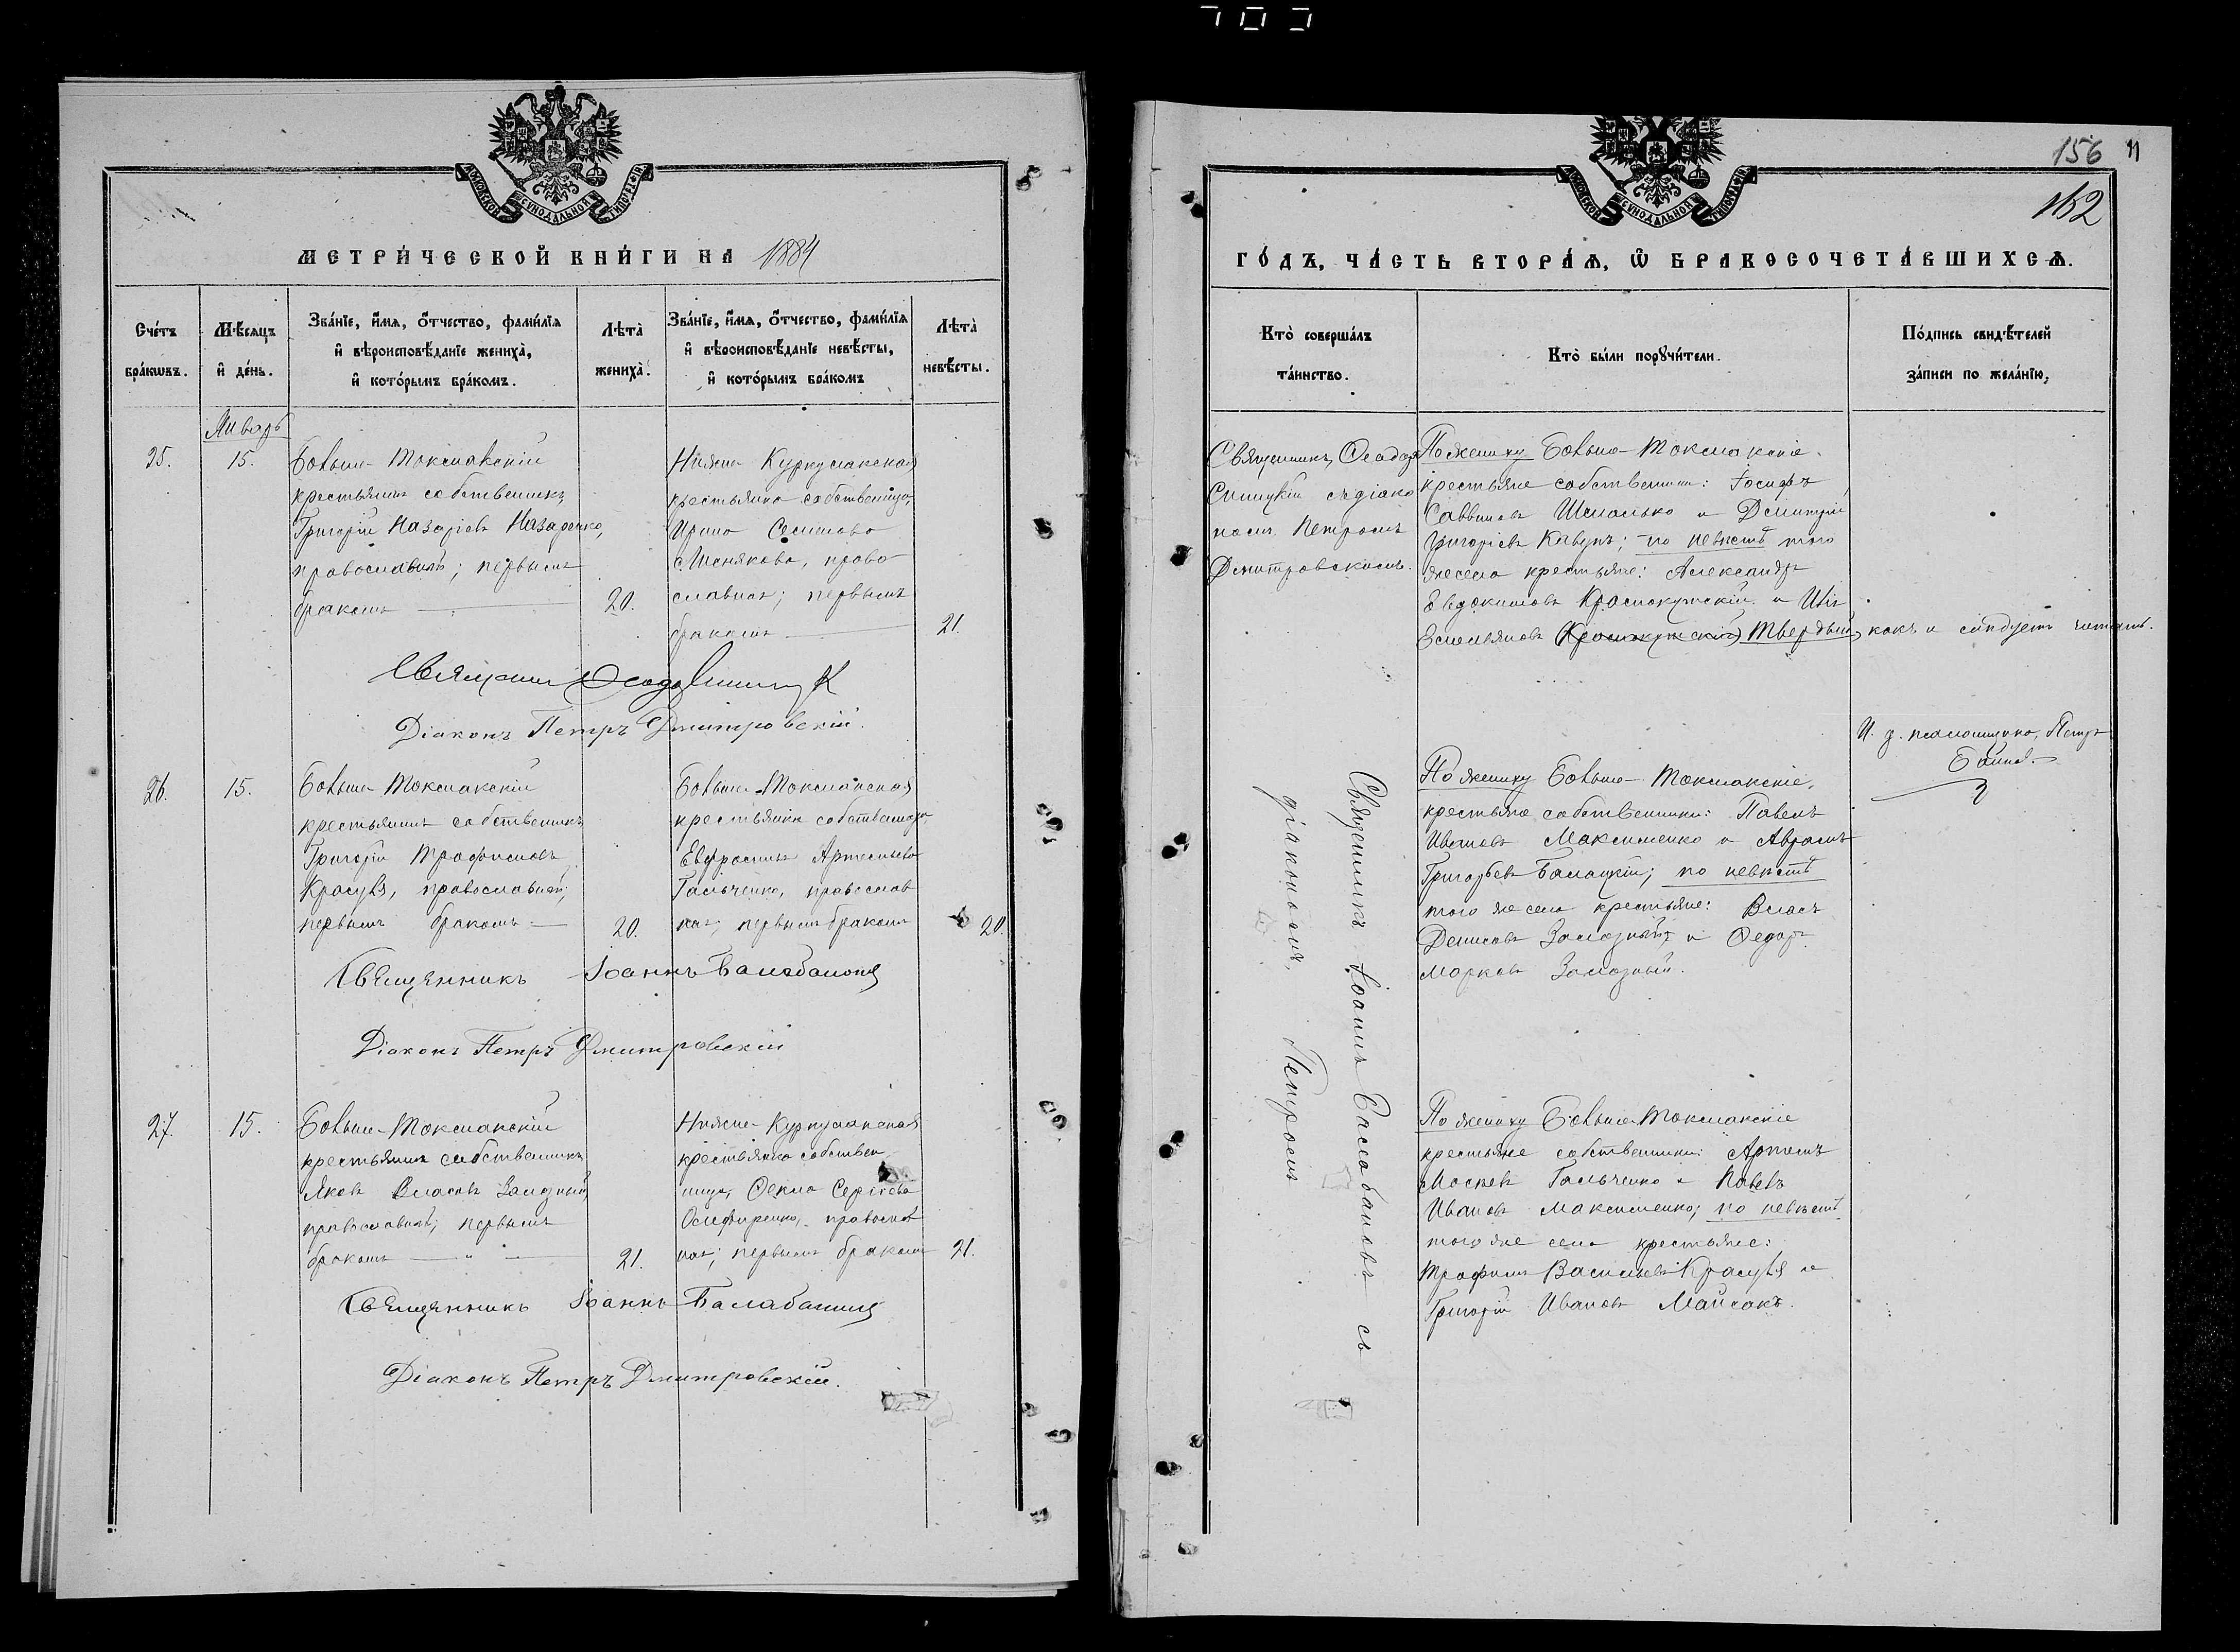 156 11
162
МОСКОВСКОЙ СѴНОДАЛЬНОЙ ТИПОГРАФІИ
МЕТРИ́ЧЕСКОЙ КНИ́ГИ НА 1884
Сче́тъ бра́кѡвъ.
Мѣ́сяцъ и҆ де́нь.
Зва́нїе, и҆́мя, ѻ҆́тчество, фами́лїя
и҆ вѣроисповѣ́данїе жениха̀,
и҆ кото́рымъ бра́комъ.
Лѣта̀ жениха̀.
Зва́нїе, и҆́мя, ѻ҆́тчество, фами́лїя
и҆ вѣроисповѣ́данїе невѣ́сты,
и҆ кото́рымъ бра́комъ
Лѣта̀ невѣ́сты.
Январь
25.
15.
Больше-Токмакскій
крестьянинъ собственникъ
Григорій Назаріевъ Назаренко,
православный; первымъ
бракомъ
20.
Нижне Куркулакская
крестьянка собственница,
Ирина Семенова
православная; первымъ
бракомъ
21.
Діаконъ Петръ Дмитровскій.
26.
15.
Больше Токмакскій
крестьянинъ собственникъ
Григорій Трофимовъ
Красуля, православный;
первымъ бракомъ —
20.
Больше-Токмакская
крестьянка собственница
Евфросинія Артемьева
Гальченко, православ
ная; первымъ бракомъ
20.
Священникъ Іоаннъ Балабановъ
Діаконъ Петръ Дмитровскій
27.
15.
Больше-Токмакскій
крестьянинъ собственникъ
Яковъ Власовъ Замозный,
православный; первымъ
бракомъ — " —
21.
Нижне-Куркулакская
крестьянка собствен-
ница, Ѳекла Сергіева
православ
ная; первымъ бракомъ
21.
Священникъ Іоаннъ Балабановъ
Діаконъ Петръ Дмитровскій.
МОСКОВСКОЙ СѴНОДАЛЬНОЙ ТИПОГРАФІИ
ГО́ДЪ, ЧА́СТЬ ВТОРА́Ѧ, Ѡ҆ БРАКОСОЧЕТА́ВШИХСѦ.
Кто̀ соверша́лъ
та́инство.
Кто̀ бы́ли порꙋчи́тели.
По́дпись свидѣ́телей
за́писи по жела́нїю,
Священникъ Ѳеодоръ
Синицкій съ діако
номъ Петромъ
Дмитровскимъ.
По жениху Больше-Токмакскіе
крестьяне собственники: Іосифъ
Саввиновъ Шеламько и Дмитрій
Григоріевъ Кавунъ; по невѣстѣ того
же села крестьяне: Александръ
Евдокимовъ Краснокутскій и Илія
Емельяновъ (Краснокутскій) Твердый, какъ и слѣдуетъ читать.
И. д. псаломщика, Петръ
Священникъ Іоаннъ Балабановъ съ
діакономъ, Петромъ
По жениху Больше-Токмакскіе,
крестьяне собственники: Павелъ
Ивановъ Максименко и Аврамъ
Григорьевъ Балацкій; по невѣстѣ
того же села крестьяне: Власъ
Денисовъ Замозный и Ѳедоръ
Марковъ Замозный.
По жениху Больше-Токмакскіе
крестьяне собственники: Артемъ
Гальченко и Павелъ
Ивановъ Максименко; по невѣстѣ
того же села крестьяне:
Трофимъ Васильевъ Красуля и
Григорій Ивановъ Майсакъ.